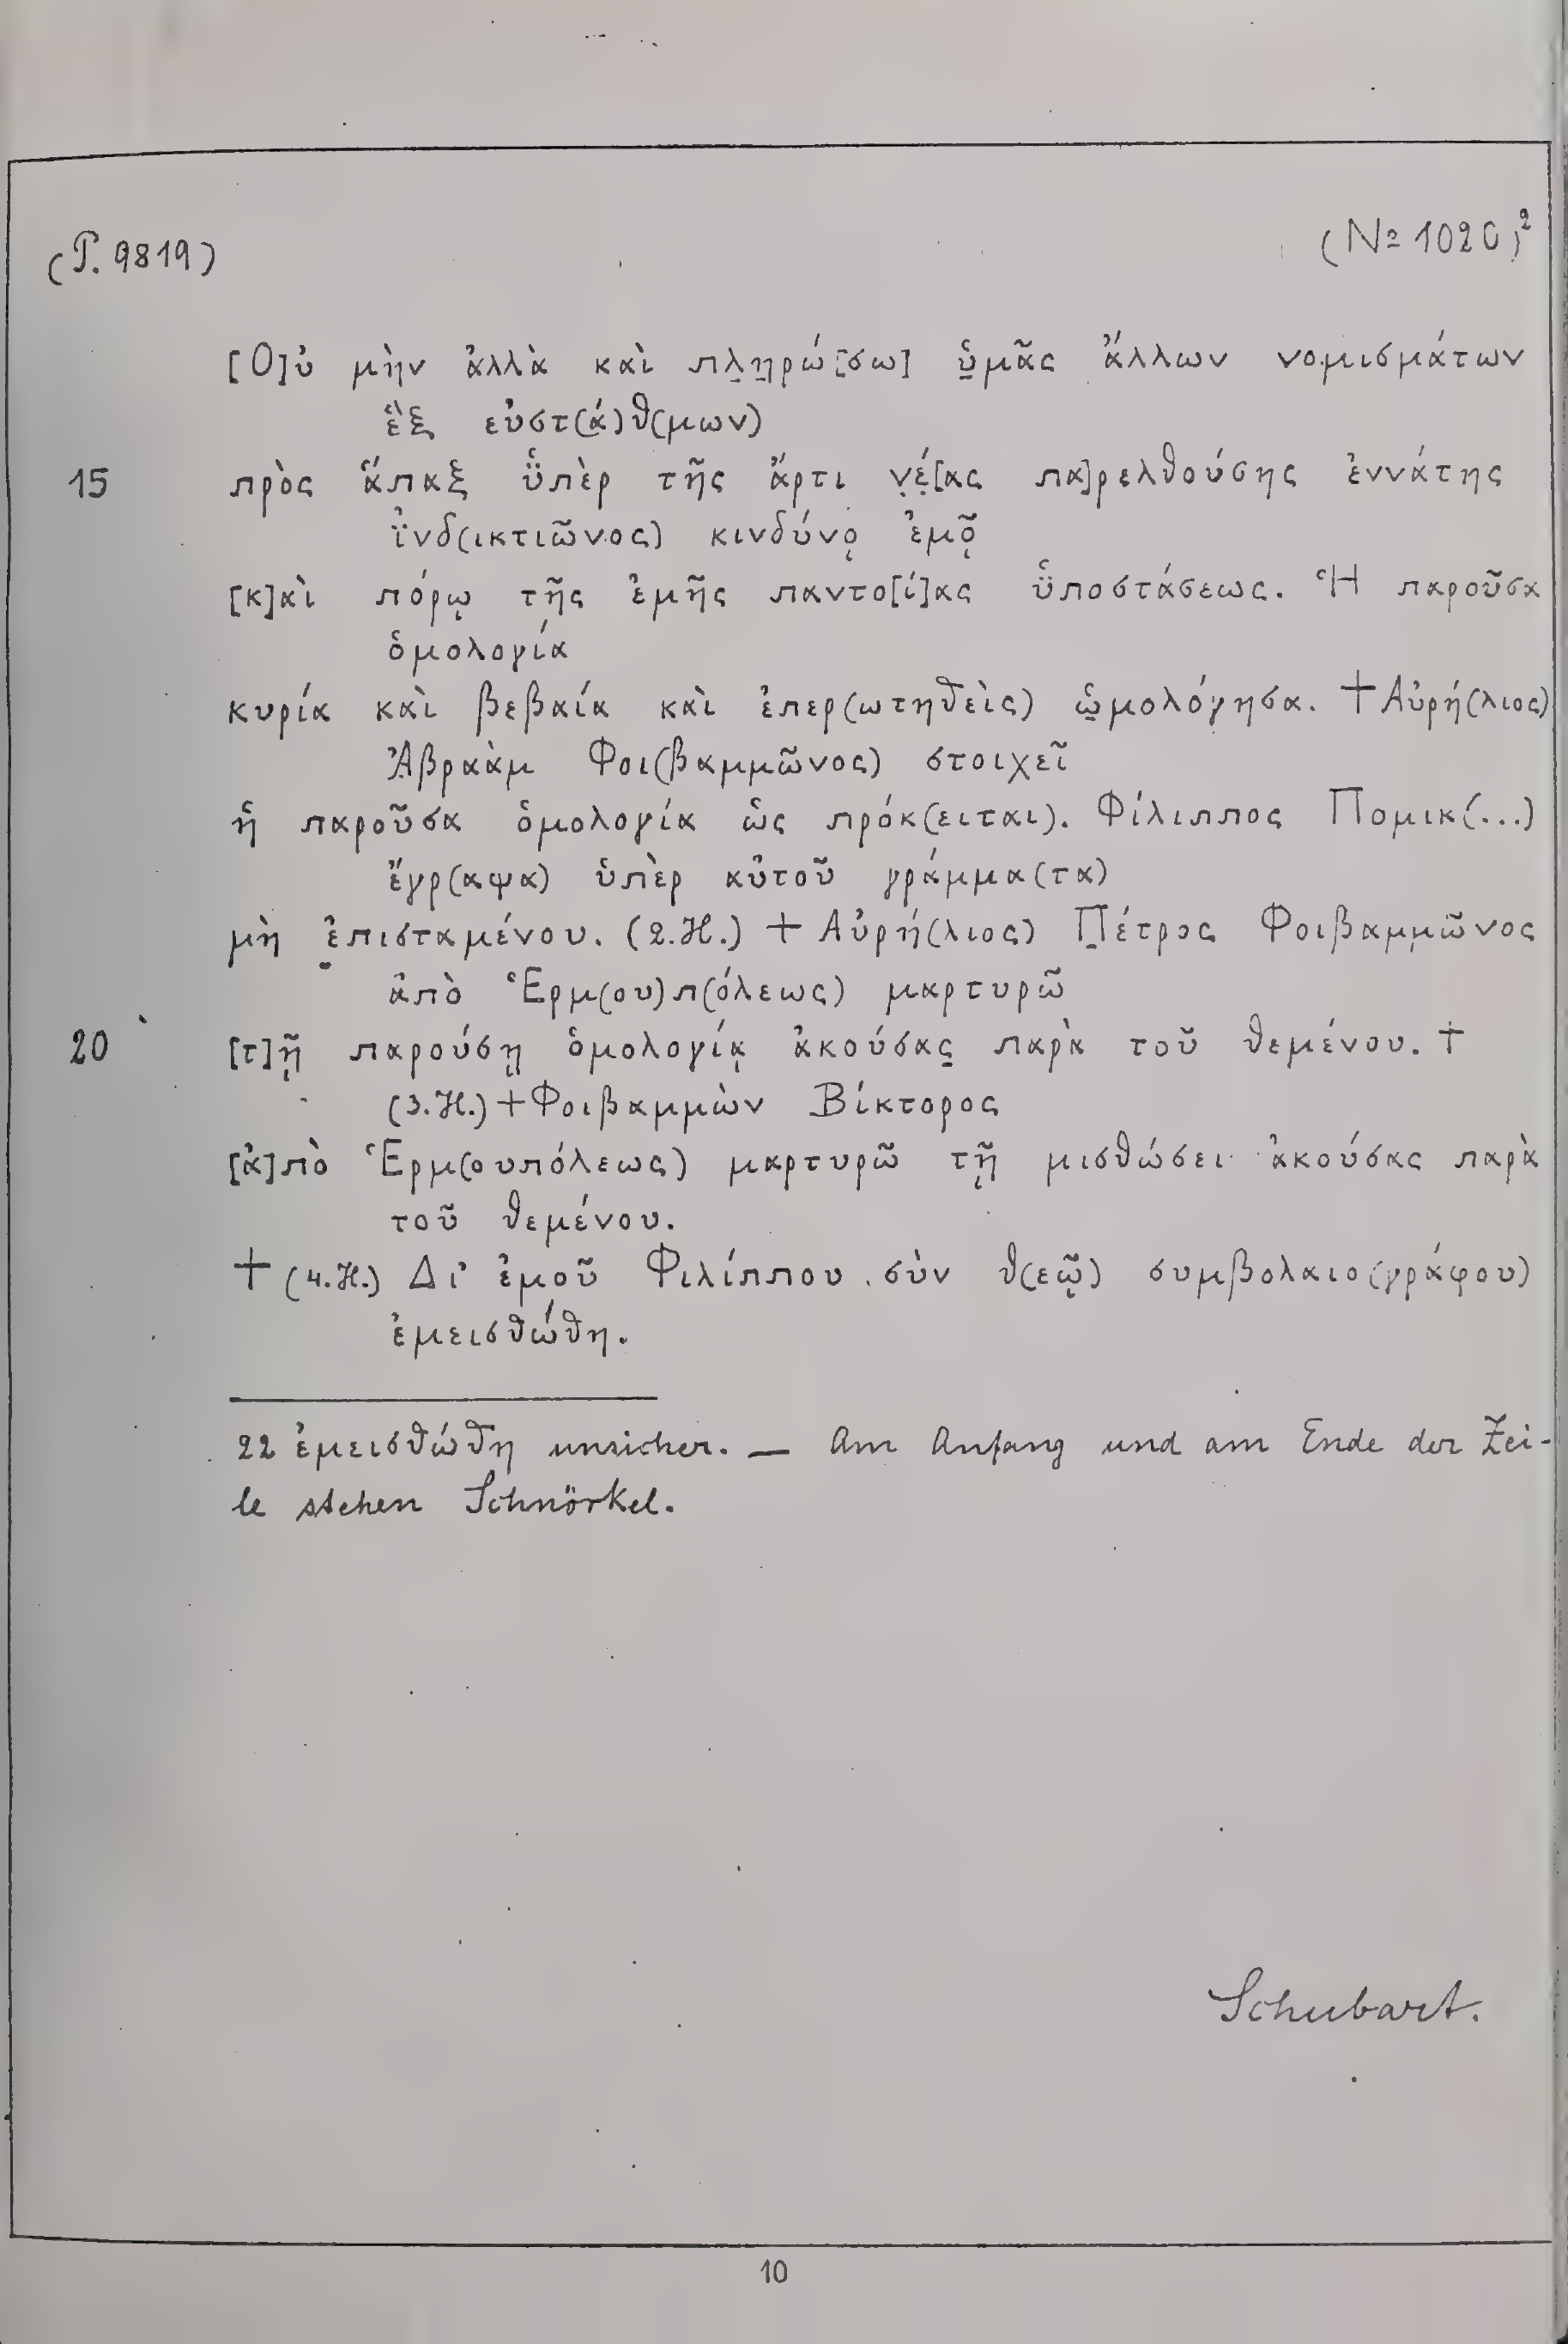 (P. 9819) (№ 1020)²
[Ο]ὐ μὴν ἀλλὰ καὶ πλ̣η̣ρώ[σω] ὑ̣μᾶς ἄλλων νομισμάτων
ἓξ εὐστ(ά)θ(μων)
15 πρὸς ἅπαξ ὕ̈πὲρ τῆς ἄρτι ν̣έ̣[ας πα]ρελθούσης ἐννάτης
ἰ̈νδ(ικτιῶνος) κινδύνῳ ἐμῷ
[κ]αὶ πόρῳ τῆς ἐμῆς παντο[ί]ας ὑ̈ποστάσεως. Ἡ παροῦσα
ὁμολογία
κυρία καὶ βεβαία καὶ ἐπερ(ωτηθεὶς) ὡ̣μολόγησα. † Αὐρή(λιος)
Ἀβραὰμ Φοι(βαμμῶνος) στοιχεῖ
ἡ παροῦσα ὁμολογία ὡς πρόκ(ειται). Φίλιππος Πομικ(...)
ἔγρ(αψα) ὑπὲρ αὐτοῦ γράμμα(τα)
μὴ ἐ̣πισταμένου. (2.H.) † Αὐρή(λιος) Π̣έτρος Φοιβαμμῶνος
ἀπὸ Ἑρμ(ου)π(όλεως) μαρτυρῶ
20 [τ]ῇ παρούσῃ ὁμολογίᾳ ἀκούσας̣ παρὰ τοῦ θεμένου. †
(3.H.) † Φοιβαμμὼν Βίκτορος
[ἀ]πὸ Ἑρμ(ουπόλεως) μαρτυρῶ τῇ μισθώσει ἀκούσας παρὰ
τοῦ θεμένου.
† (4.H.) Δι' ἐμοῦ Φιλίππου σὺν θ(εῷ) συμβολαιο(γράφου)
ἐμεισθώθη.
22 ἐμεισθώθη unsicher. — Am Anfang und am Ende der Zei-
le stehen Schnörkel.
Schubart.
10